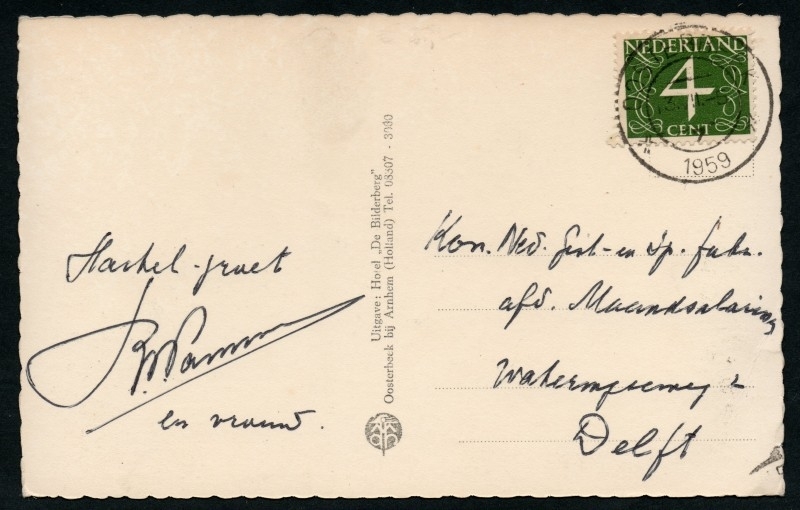 NEDERLAND
4
CENT
1959
Hartel-groet
en vrouw.
Uitgave: Hotel „De Bilderberg"
Oosterbeek bij Arnhem (Holland) Tel. 08307 - 3090
Kon. Ned. Gist- en Sp. fabr.
afd. Maandsalaring
Wateringseweg 2
Delft